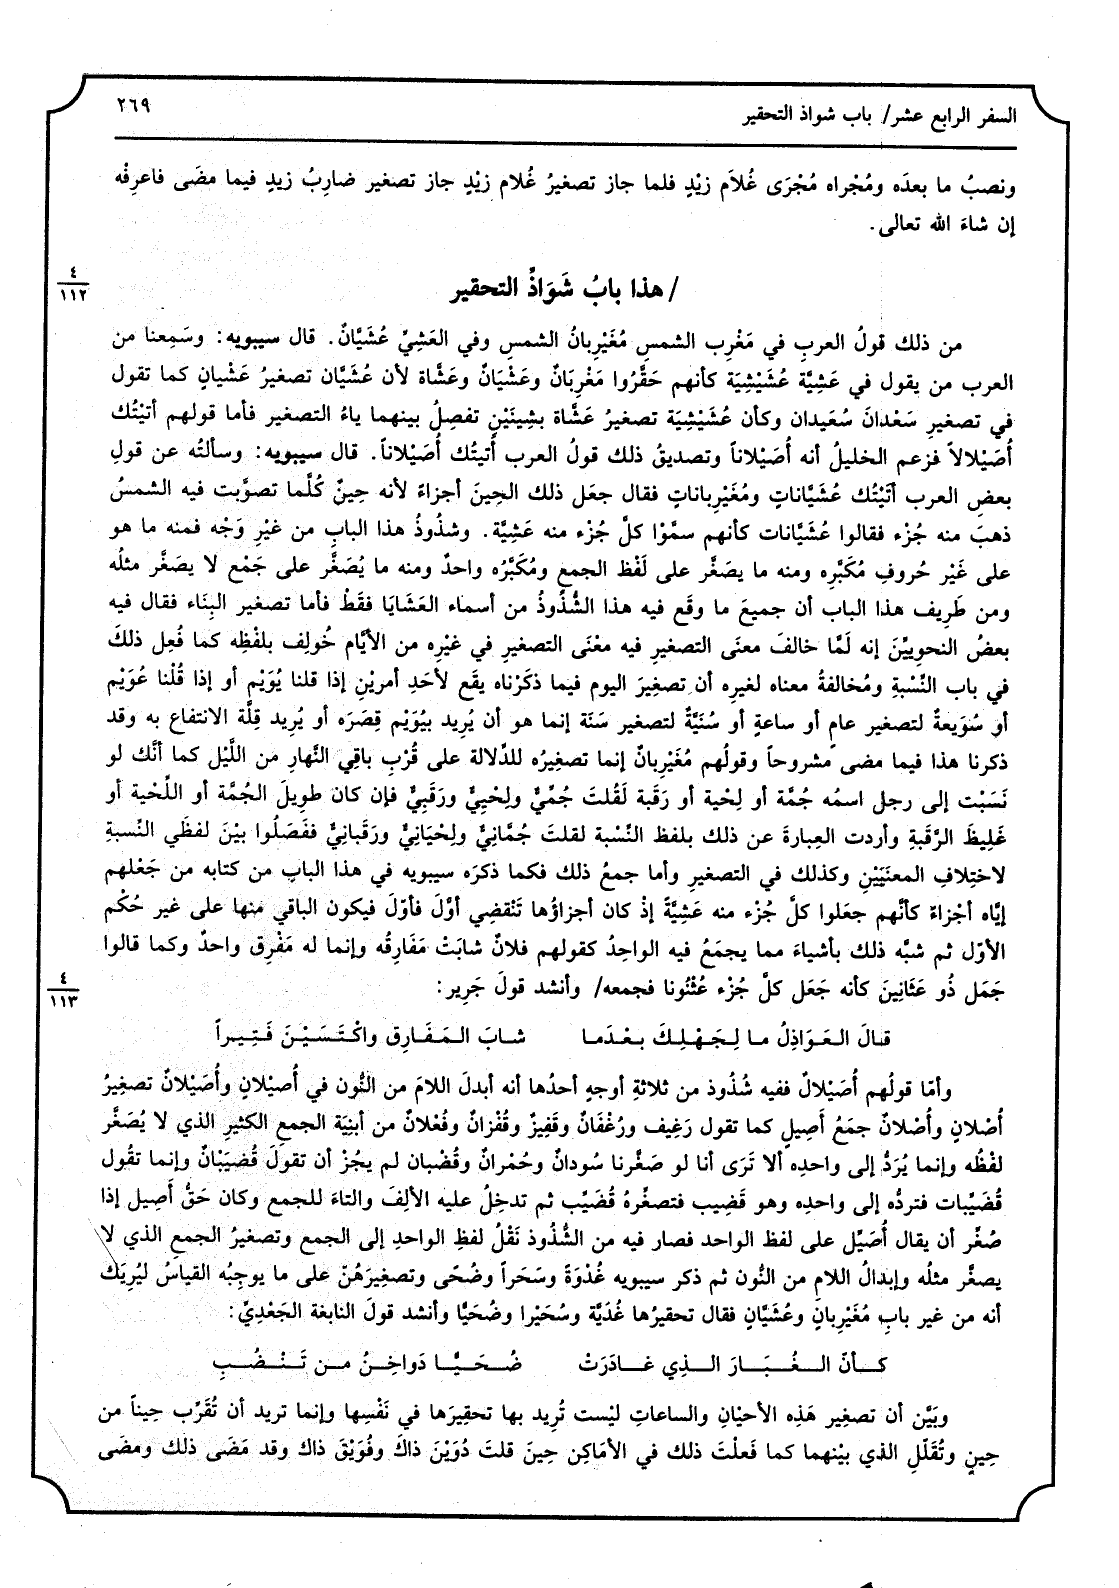 السفر الرابع عشر/ باب شواذ التحقير
٢٦٩
ونصبُ ما بعدَه ومُجْراه مُجْرَى غُلاَم زيْدٍ فلما جاز تصغيرُ غُلام زيْدٍ جاز تصغير ضارِبُ زيدٍ فيما مضَى فاعرِفْه
إن شاءَ الله تعالى.
٤
١١٢
/ هذا بابُ شَوَاذِّ التحقير
من ذلك قولُ العربِ في مَغْرِب الشمسِ مُغَيْرِبانُ الشمسِ وفي العَشِيِّ عُشَيَّانٌ. قال سيبويه: وسَمِعنا من
العرب من يقول في عَشِيَّة عُشَيْشِيَة كأنهم حَقَّرُوا مَغْرِبَانٌ وعَشْيَانٌ وعَشَّاة لأن عُشَيَّان تصغيرُ عَشْيانٍ كما تقول
في تصغيرِ سَعْدانَ سُعَيدان وكأن عُشَيْشِيَة تصغيرُ عَشَّاة بشِينَيْنِ تفصِلُ بينهما ياءُ التصغير فأما قولهم أتيْتُك
أُصَيْلالاً فزعم الخليلُ أنه أُصَيْلاناً وتصديقُ ذلك قولُ العرب أتيتُك أُصَيْلاناً. قال سيبويه: وسألتُه عن قولِ
بعض العرب أتَيْتُك عُشَيَّاناتٍ ومُغَيْرِباناتٍ فقال جعَل ذلك الحِينَ أجزاءً لأنه حِينٌ كُلَّما تصوَّبت فيه الشمسُ
ذهبَ منه جُزْء فقالوا عُشَيَّانات كأنهم سمَّوْا كلَّ جُزْء منه عَشِيَّة. وشذُوذُ هذا البابِ من غَيْرِ وَجْه فمنه ما هو
على غَيْر حُروفِ مُكَبَّرِه ومنه ما يصَغَّر على لَفْظ الجمع ومُكَبَّرُه واحدٌ ومنه ما يُصَغَّر على جَمْع لا يصَغَّر مثلُه
ومن طَرِيف هذا الباب أن جميعَ ما وقَع فيه هذا الشُّذُوذُ من أسماء العَشَايَا فقَطْ فأما تصغير البِنَاء فقال فيه
بعضُ النحويِّينَ إنه لَمَّا خالفَ معنَى التصغيرِ فيه معْنَى التصغيرِ في غيْرِه من الأيَّام خُولِف بلفْظِه كما فُعِل ذلكَ
في باب النِّسْبةِ ومُخالفةُ معناه لغيرِه أن تصغِيرَ اليوم فيما ذكَرْناه يقَع لأحَدِ أمريْنِ إذا قلنا يُوَيْم أو إذا قُلْنا عُوَيْم
أو سُوَيعةٌ لتصغير عامٍ أو ساعةٍ أو سُنَيَّةٌ لتصغير سَنَة إنما هو أن يُرِيد بيُوَيْم قِصَرَه أو يُريد قِلَّة الانتفاع به وقد
ذكرنا هذا فيما مضى مشروحاً وقولُهم مُغَيْرِبانٌ إنما تصغيرُه للدِّلالة على قُرْبِ باقِي النَّهارِ من اللَّيْل كما أنَّك لو
نَسَبْت إلى رجل اسمُه جُمَّة أو لِحْية أو رَقَبة لَقُلتَ جُمِّيٌّ ولِحْييٌّ ورَقَبيٌّ فإن كان طوِيلَ الجُمَّة أو اللِّحْية أو
غَلِيظَ الرَّقَبةِ وأردت العِبارةَ عن ذلك بلفظِ النِّسْبة لقلتَ جُمَّانيٌّ ولِحْيَانِيٌّ ورَقَبانِيٌّ ففَصَلُوا بيْنَ لفظَي النِّسبةِ
لاختِلافِ المعنَيَيْنِ وكذلك في التصغيرِ وأما جمعُ ذلك فكما ذكرَه سيبويه في هذا البابِ من كتابه من جَعْلهم
إيَّاه أجْزاءً كأنَّهم جعَلوا كلَّ جُزْء منه عَشِيَّةً إذْ كان أجزاؤُها تَنْقضِي أوَّلَ فأوَّلَ فيكون الباقي منها على غير حُكْم
الأوّل ثم شبَّه ذلك بأشياءَ مما يجمَعُ فيه الواحِدُ كقولهم فلانٌ شابَتْ مَفَارِقُه وإنما له مَفْرِق واحدٌ وكما قالوا
٤
١١٣
جَمَل ذُو عَثَانِينَ كأنه جَعَل كلَّ جُزْء عُثْنُونا فجمعه/ وأنشد قولَ جَرِير:
قالَ العَوَاذِلُ ما لِجَهْلِكَ بعْدَما شابَ المَفَارِق واكْتَسَيْنَ قَتِيراً
وأمّا قولُهم أُصَيْلالٌ ففيه شُذُوذ من ثلاثةِ أوجهٍ أحدُها أنه أبدلَ اللامَ من النُّون في أُصيْلانٍ وأُصَيْلانٌ تصغِيرُ
أُصْلانٍ وأُصْلانٌ جمَعُ أَصِيلٍ كما تقول رَغِيف ورُغْفَانٌ وقَفِيزٌ وقُفْزانٌ وفُعْلانٌ من أبنِيَة الجمعِ الكثيرِ الذي لا يُصَغَّر
لفْظُه وإنما يُرَدُّ إلى واحدِه ألا تَرَى أنا لو صَغَّرنا سُودانٌ وحُمْرانٌ وقُضْبان لم يجُزْ أن تقولَ قُضَيْبَانٌ وإنما تقُول
قُضَيِّبات فتردُّه إلى واحدِه وهو قَضِيب فتصغِّرهُ قُضَيِّب ثم تدخِلُ عليه الألِفَ والتاءَ للجمع وكان حَقُّ أَصِيل إذا
صُغِّر أن يقال أُصَيِّل على لفظ الواحد فصار فيه من الشُّذُوذ نَقْلُ لفظِ الواحدِ إلى الجمع وتصغيرُ الجمعِ الذي لا
يصغَّر مثلُه وإبدالُ اللامِ من النُّون ثم ذكر سيبويه غُدْوَةً وسَحَراً وضُحًى وتصغِيرَهُنّ على ما يوجِبُه القياسُ ليُرِيَك
أنه من غير بابِ مُغَيْرِبانٍ وعُشَيَّانٍ فقال تحقيرُها غُدَيَّة وسُحَيْرا وضُحَيًّا وأنشد قولَ النابغة الجَعْدِيّ:
كأنّ الغُبَارَ الذِي غادَرَتْ ضُحَيًّا دَواخِنُ من تَنْضُبِ
وبَيَّن أن تصغير هَذِه الأحيْانِ والساعاتِ ليْست تُرِيد بها تحقِيرَها في نَفْسِها وإنما تريد أن تُقَرِّب حِيناً من
حِينٍ وتُقَلِّلِ الذي بيْنهما كما فَعلْتَ ذلك في الأمَاكِن حِينَ قلتَ دُوَيْنَ ذاكَ وفُوَيْقَ ذاك وقد مَضَى ذلك ومضَى